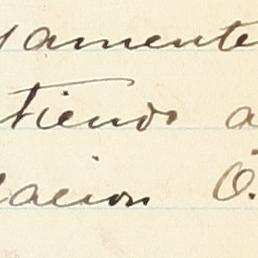 amente
tiendo a
acion O.